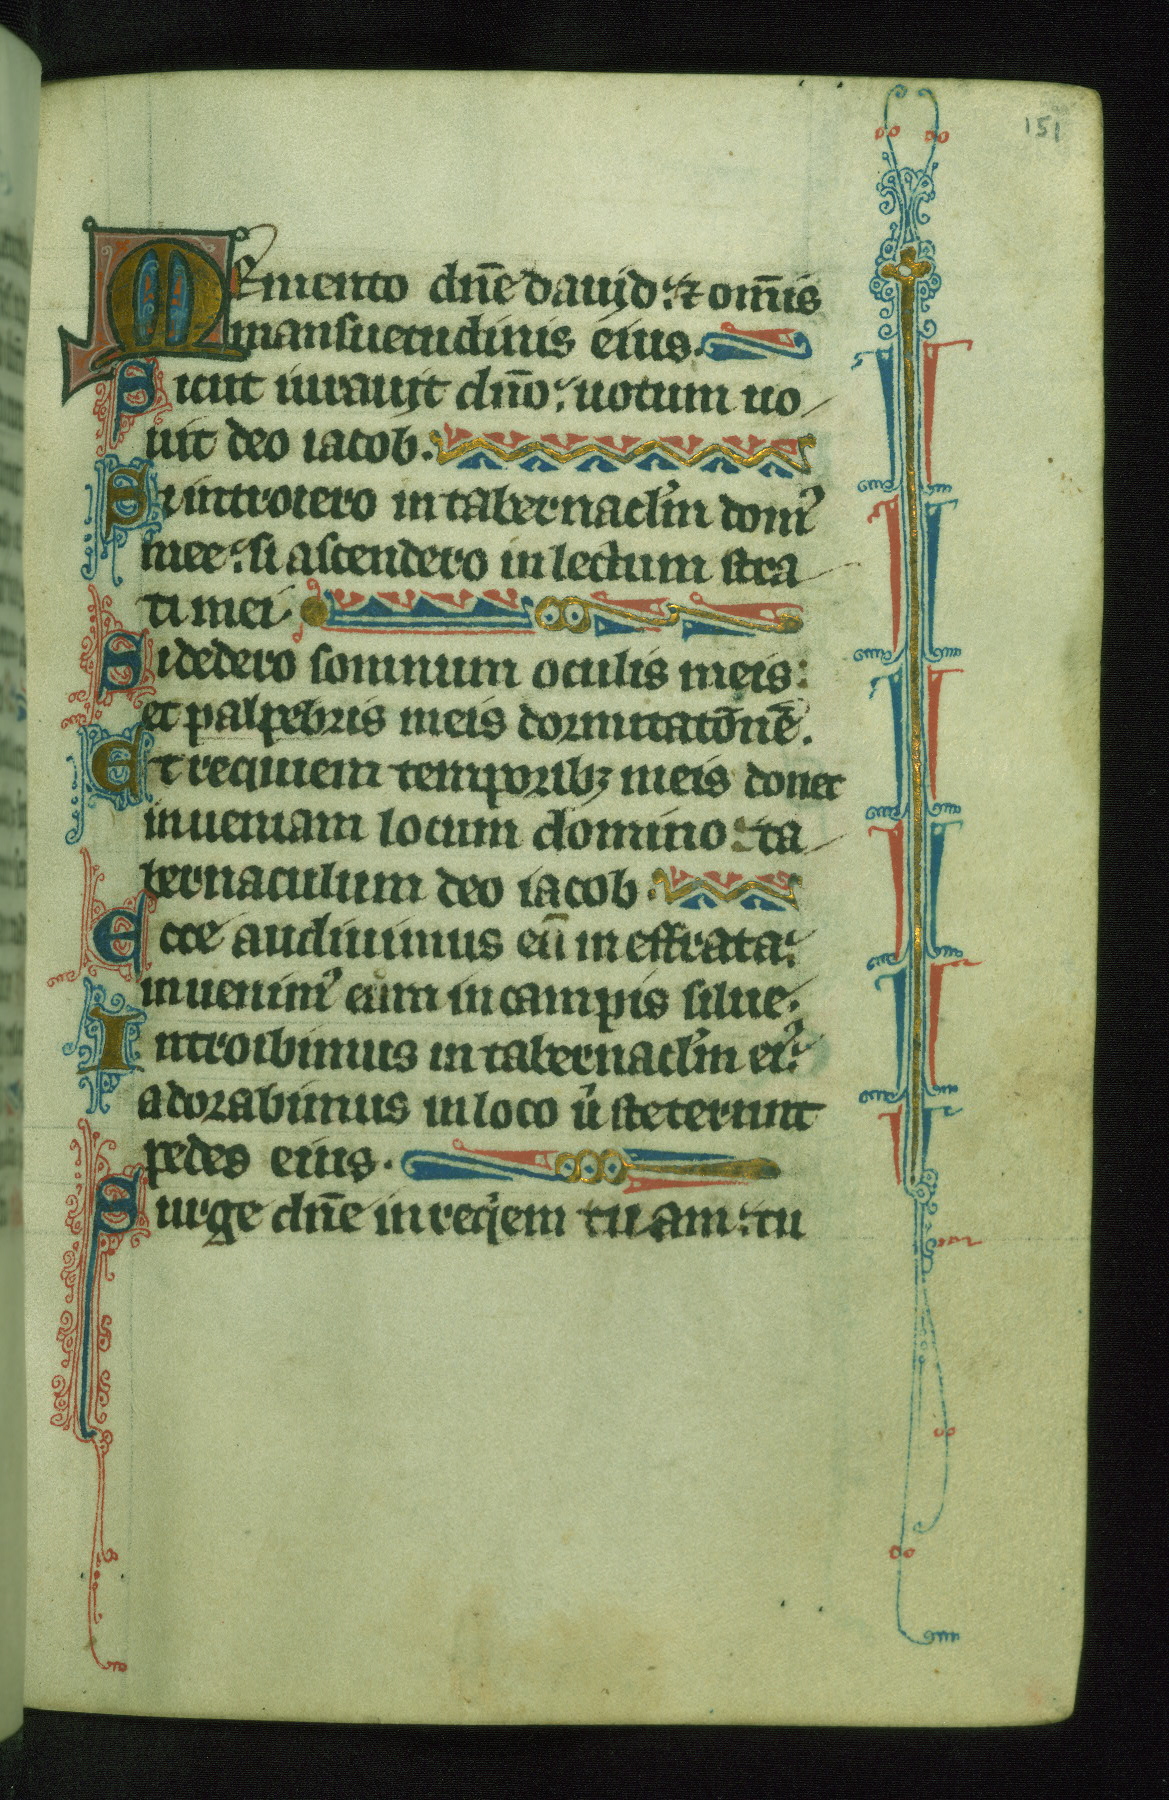 151
Memento dn̄e dauid : & om̄is
mansuetudinis eius.
Sicut iurauit dn̄o : uotum uo
uit deo iacob.
Si introiero in tabernacl̓m dom᾿
mee : si ascendero in lectum stra
ti mei
Si dedero somnum oculis meis :
et palpebris meis dormitatōnē.
Et requiem temporibꝫ meis donec
inueniam locum domino : ta
bernaculum deo iacob .
Ecce audiuimus eū in effrata :
inuenim᾿ eum in campis silue.
Introibimus in tabernacl̓m ei᾿ :
adorabimus in loco u̓ steterunt
pedes eius.
Surge dn̄e in reqiem tuam : tu